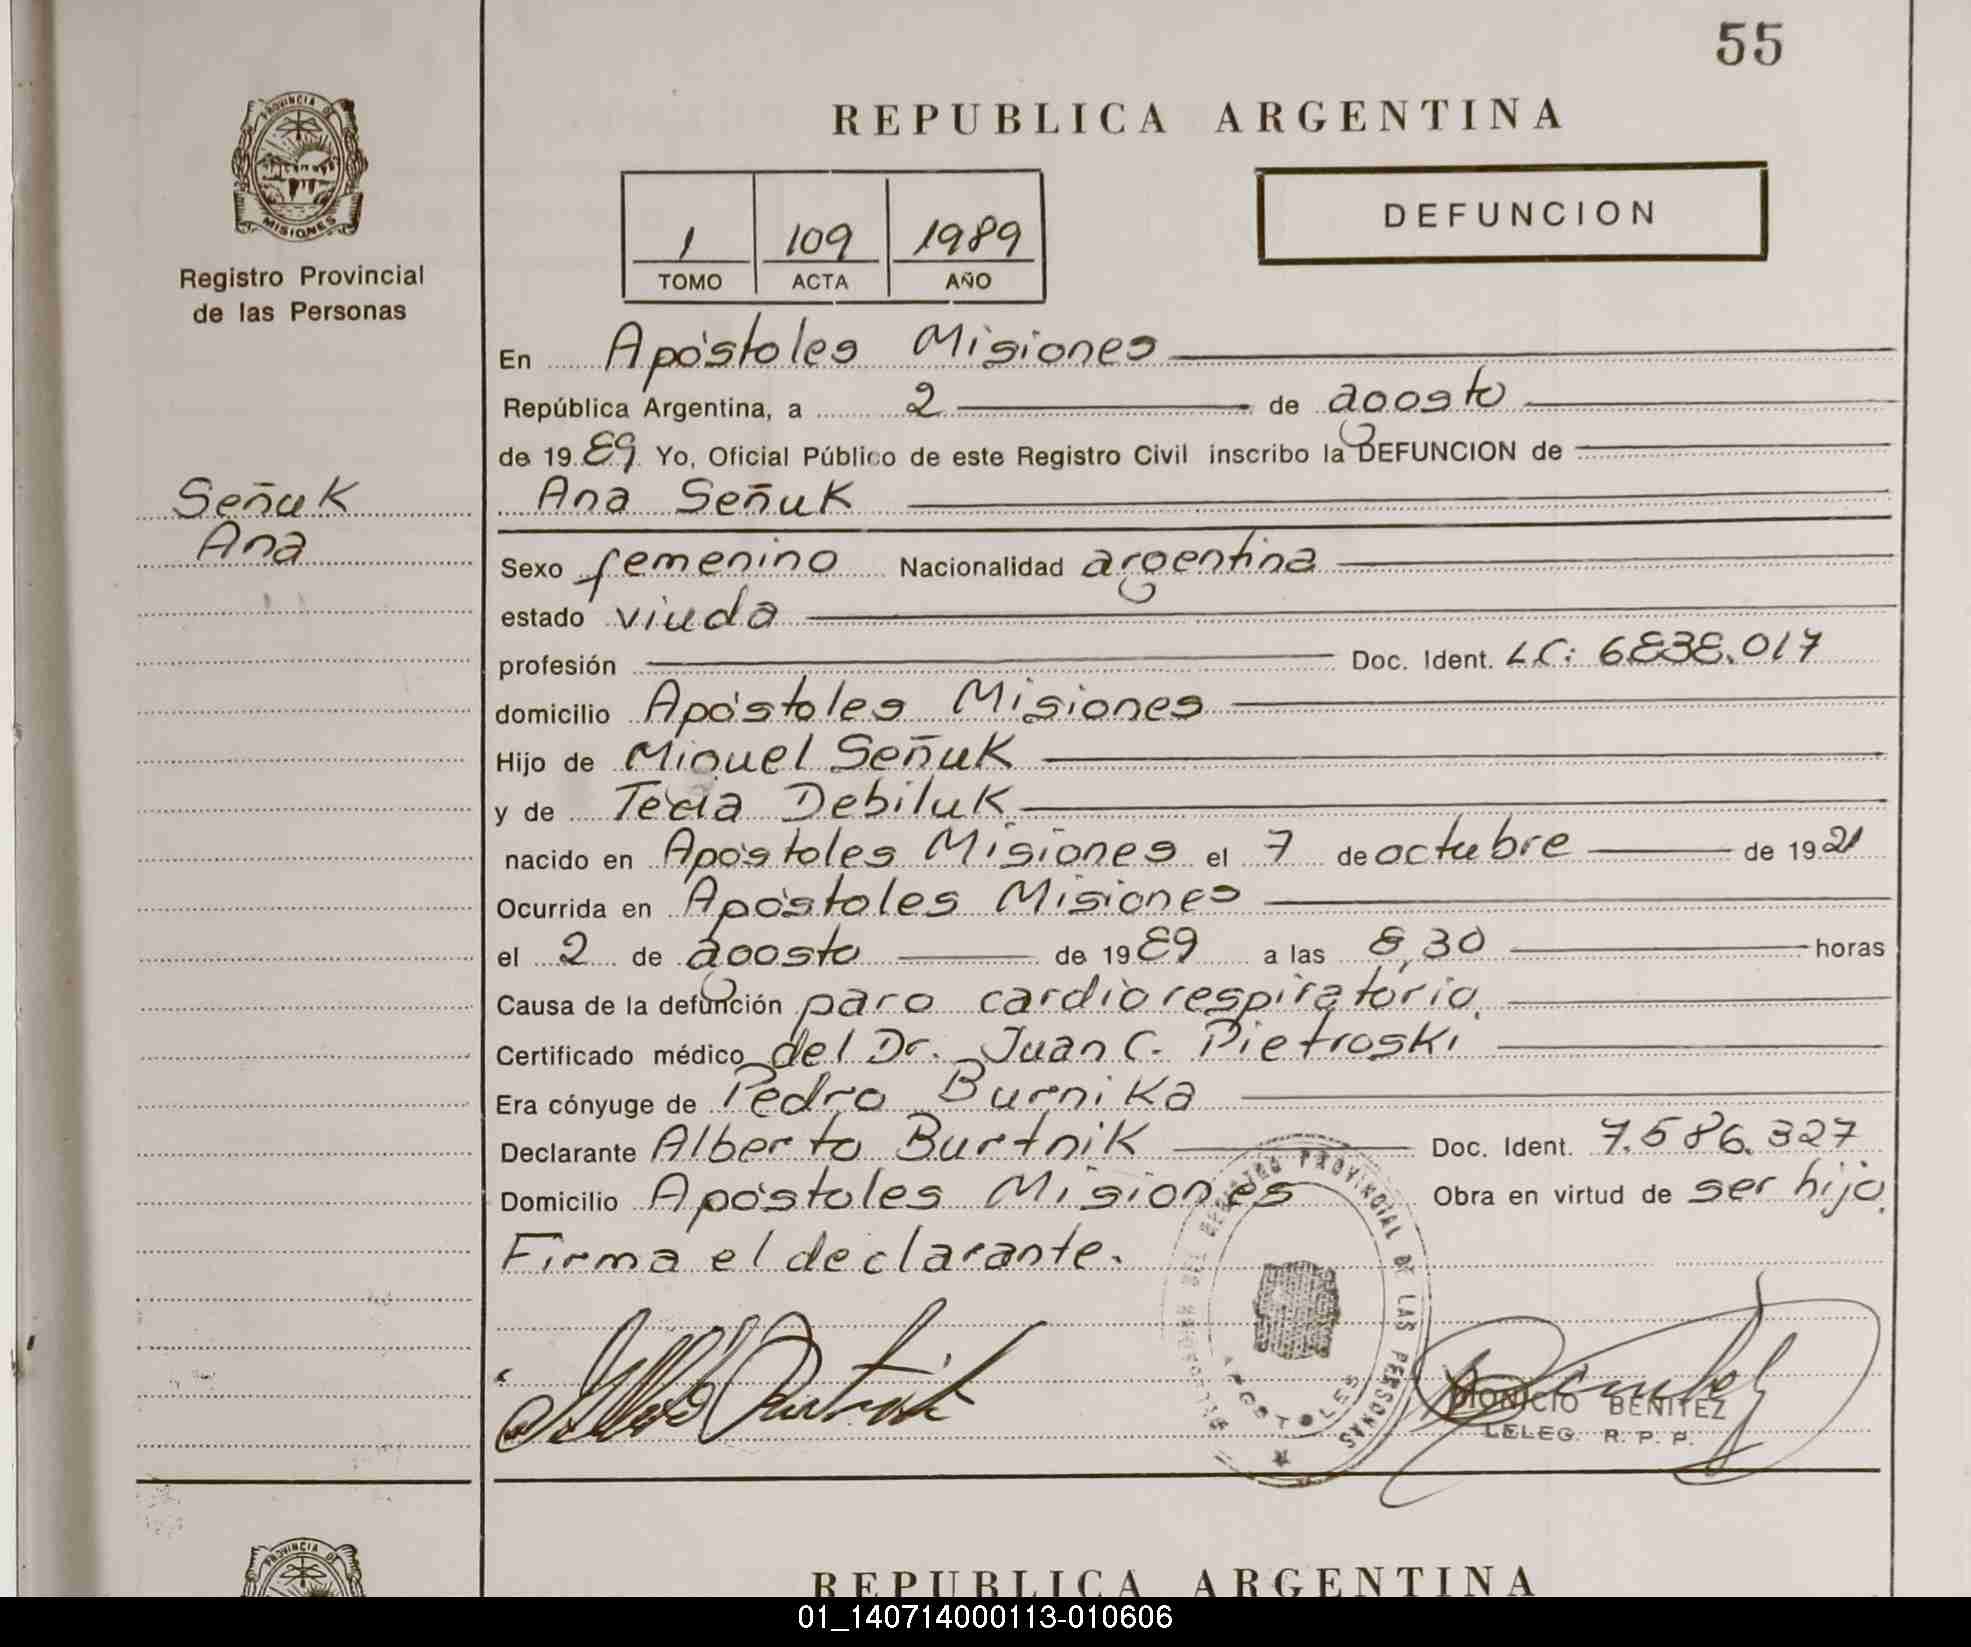 55
PROVINCIA DE
MISIONES
Registro Provincial
de las Personas
REPUBLICA ARGENTINA
1 109 1989
TOMO ACTA AÑO
DEFUNCION
En Apóstoles Misiones
República Argentina, a 2 de agosto
de 1989 Yo, Oficial Público de este Registro Civil inscribo la DEFUNCION de
Señuk
Ana
Ana Señuk
Sexo femenino Nacionalidad argentina
estado viuda
profesión Doc. Ident. L.C: 6838.017
domicilio Apóstoles Misiones
Hijo de Miguel Señuk
y de Tecla Debiluk
nacido en Apóstoles Misiones el 7 de octubre de 1921
Ocurrida en Apóstoles Misiones
el 2 de agosto de 1989 a las 8,30 horas
Causa de la defunción paro cardiorespiratorio.
Certificado médico del Dr. Juan C. Pietroski
Era cónyuge de Pedro Burnika
Declarante Alberto Burtnik Doc. Ident. 7.586.327
Domicilio Apóstoles Misiones Obra en virtud de ser hijo.
Firma el declarante.
REGISTRO PROVINCIAL DE LAS PERSONAS
APOSTOLES
DIONICIO BENITEZ
LELEG. R. P. P.
PROVINCIA DE
REPUBLICA ARGENTINA
01_140714000113-010606